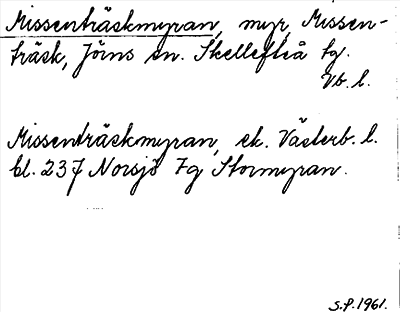 Missenträskmyran, myr, Missen-
träsk, Jörns sn. Skellefteå tg.
Vb. l.
Missenträskmyran, ek. Västerb. l.
bl. 237 Norsjö 7g Stormyran.
S.P. 1961.